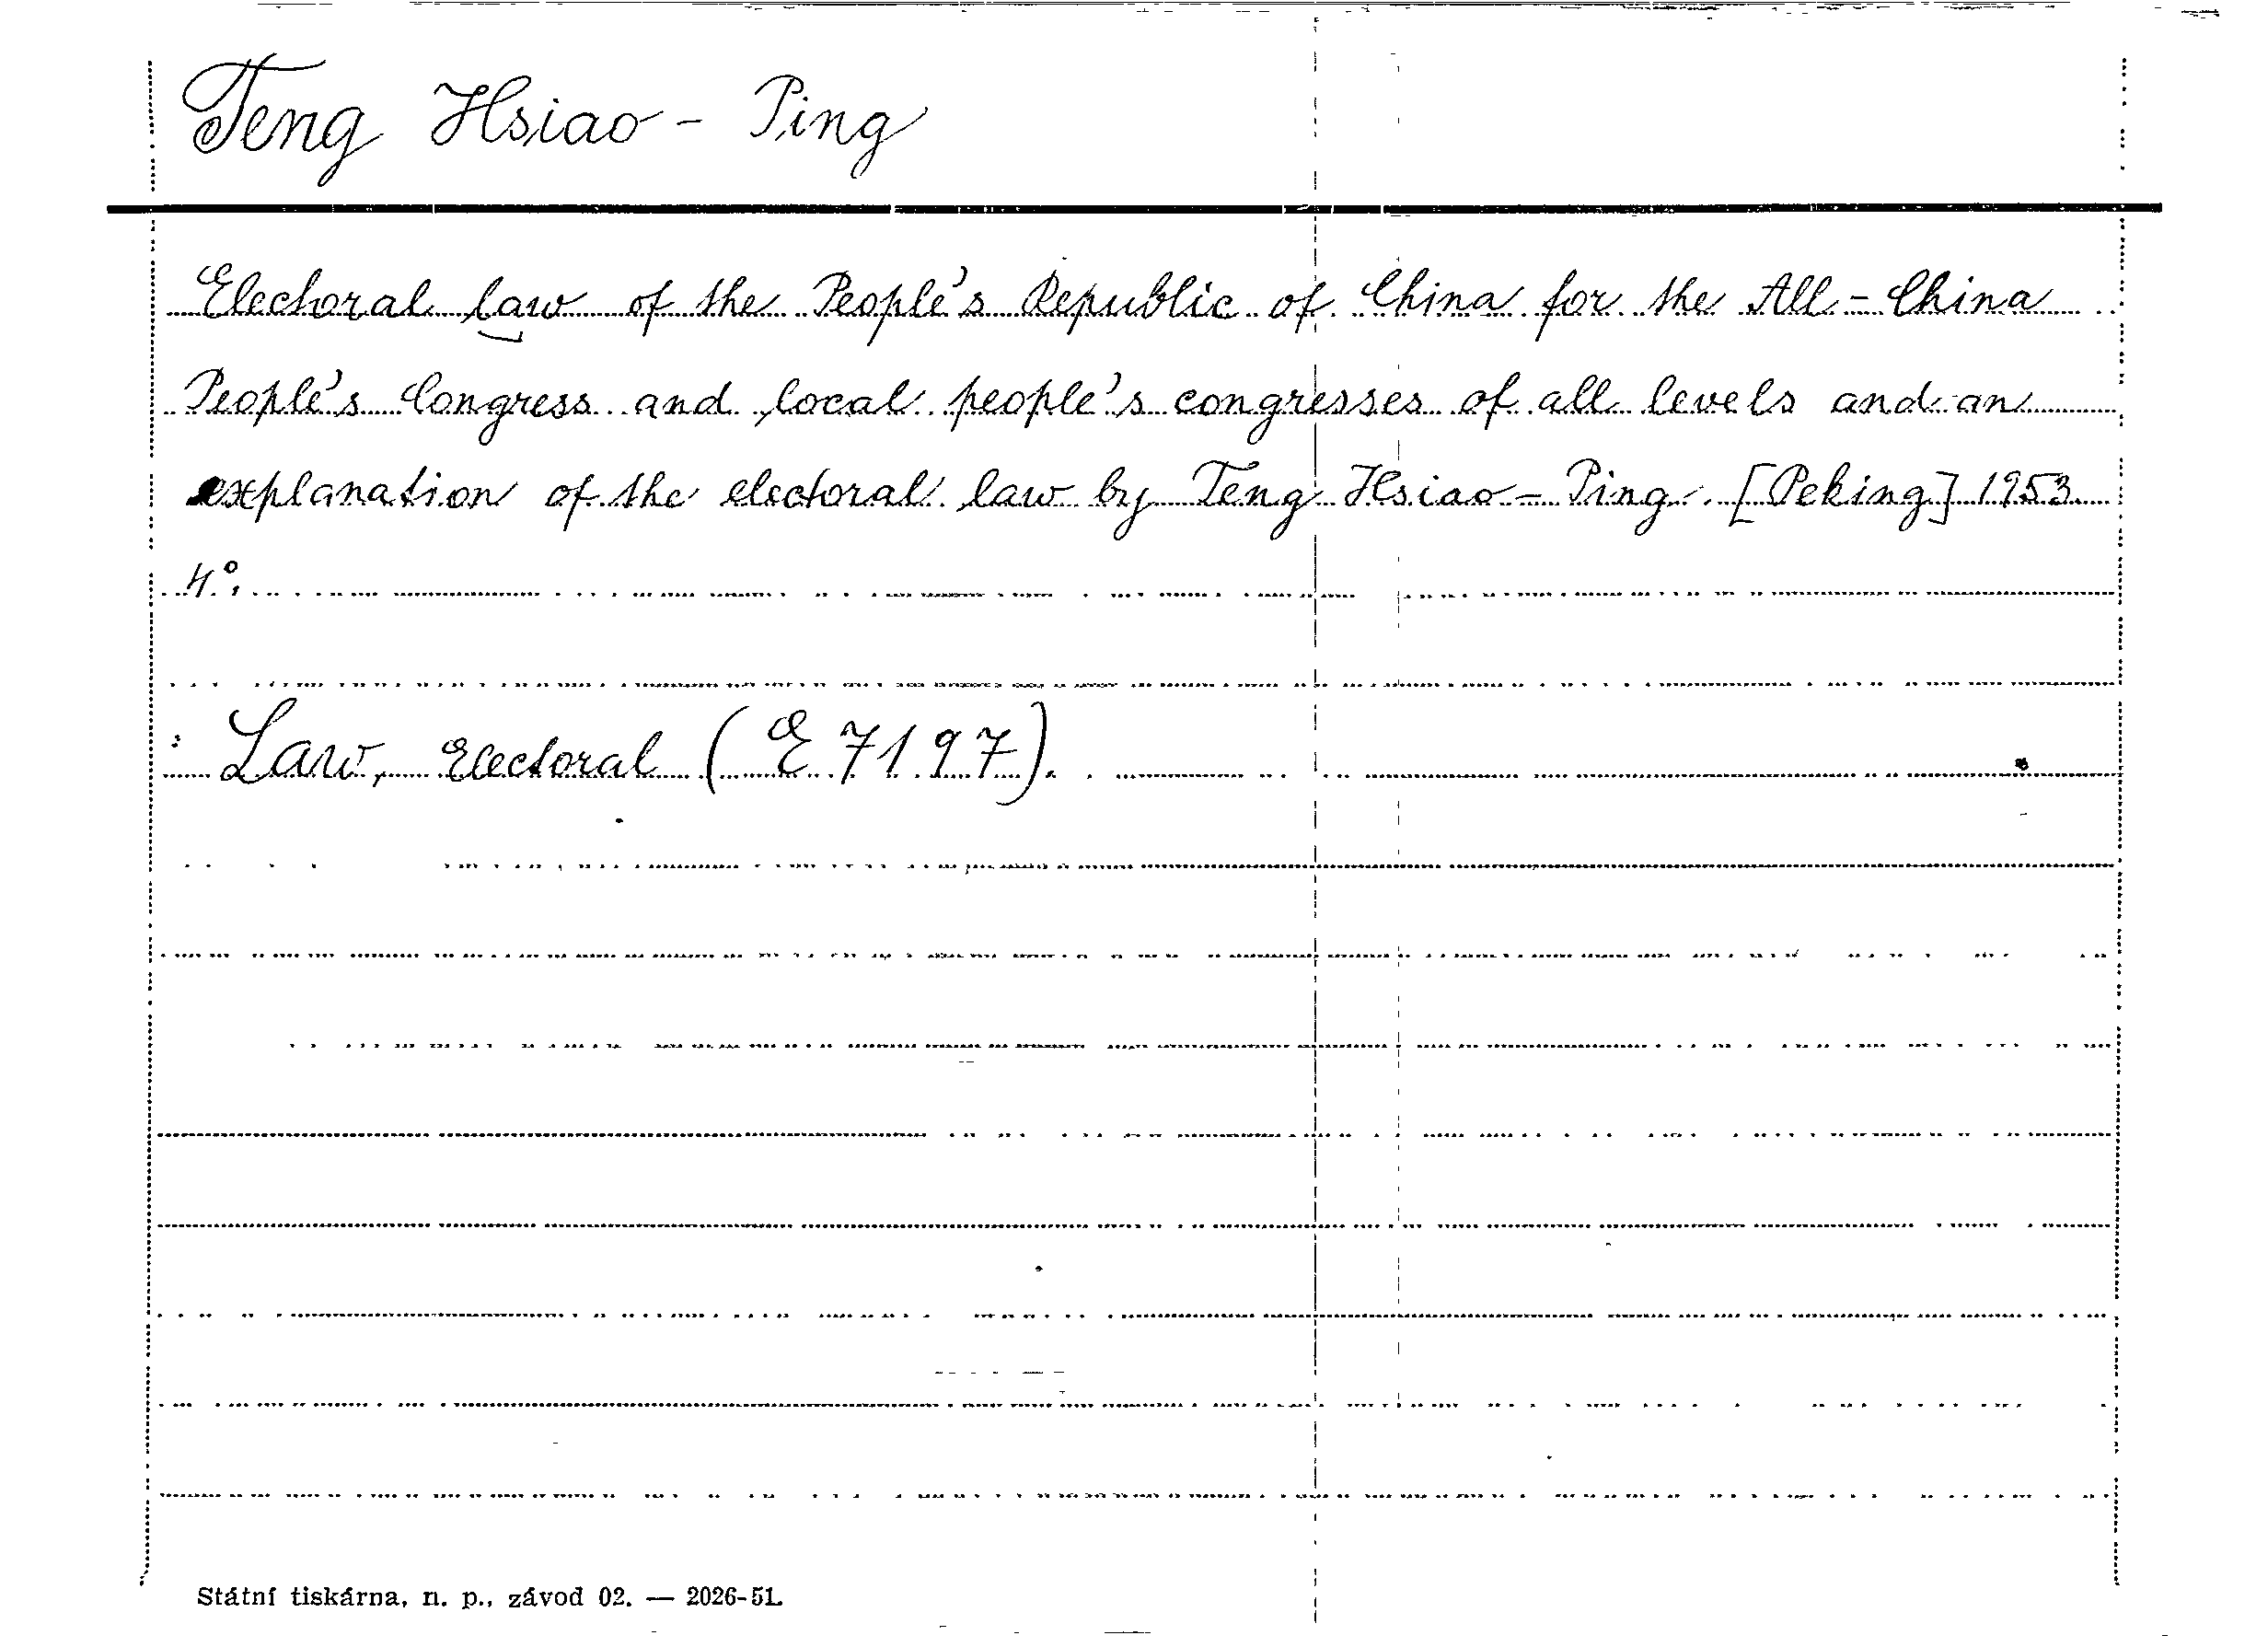 Teng Hsiao - Ping
Electoral law of the People's Republic of China for the All - China
People's Congress and local people's congresses of all levels and an
explanation of the electoral law by Teng Hsiao - Ping. [Peking] 1953.
4°.
: Law, Electoral ( E 7197).
Státní tiskárna, n. p., závod 02. — 2026-51.